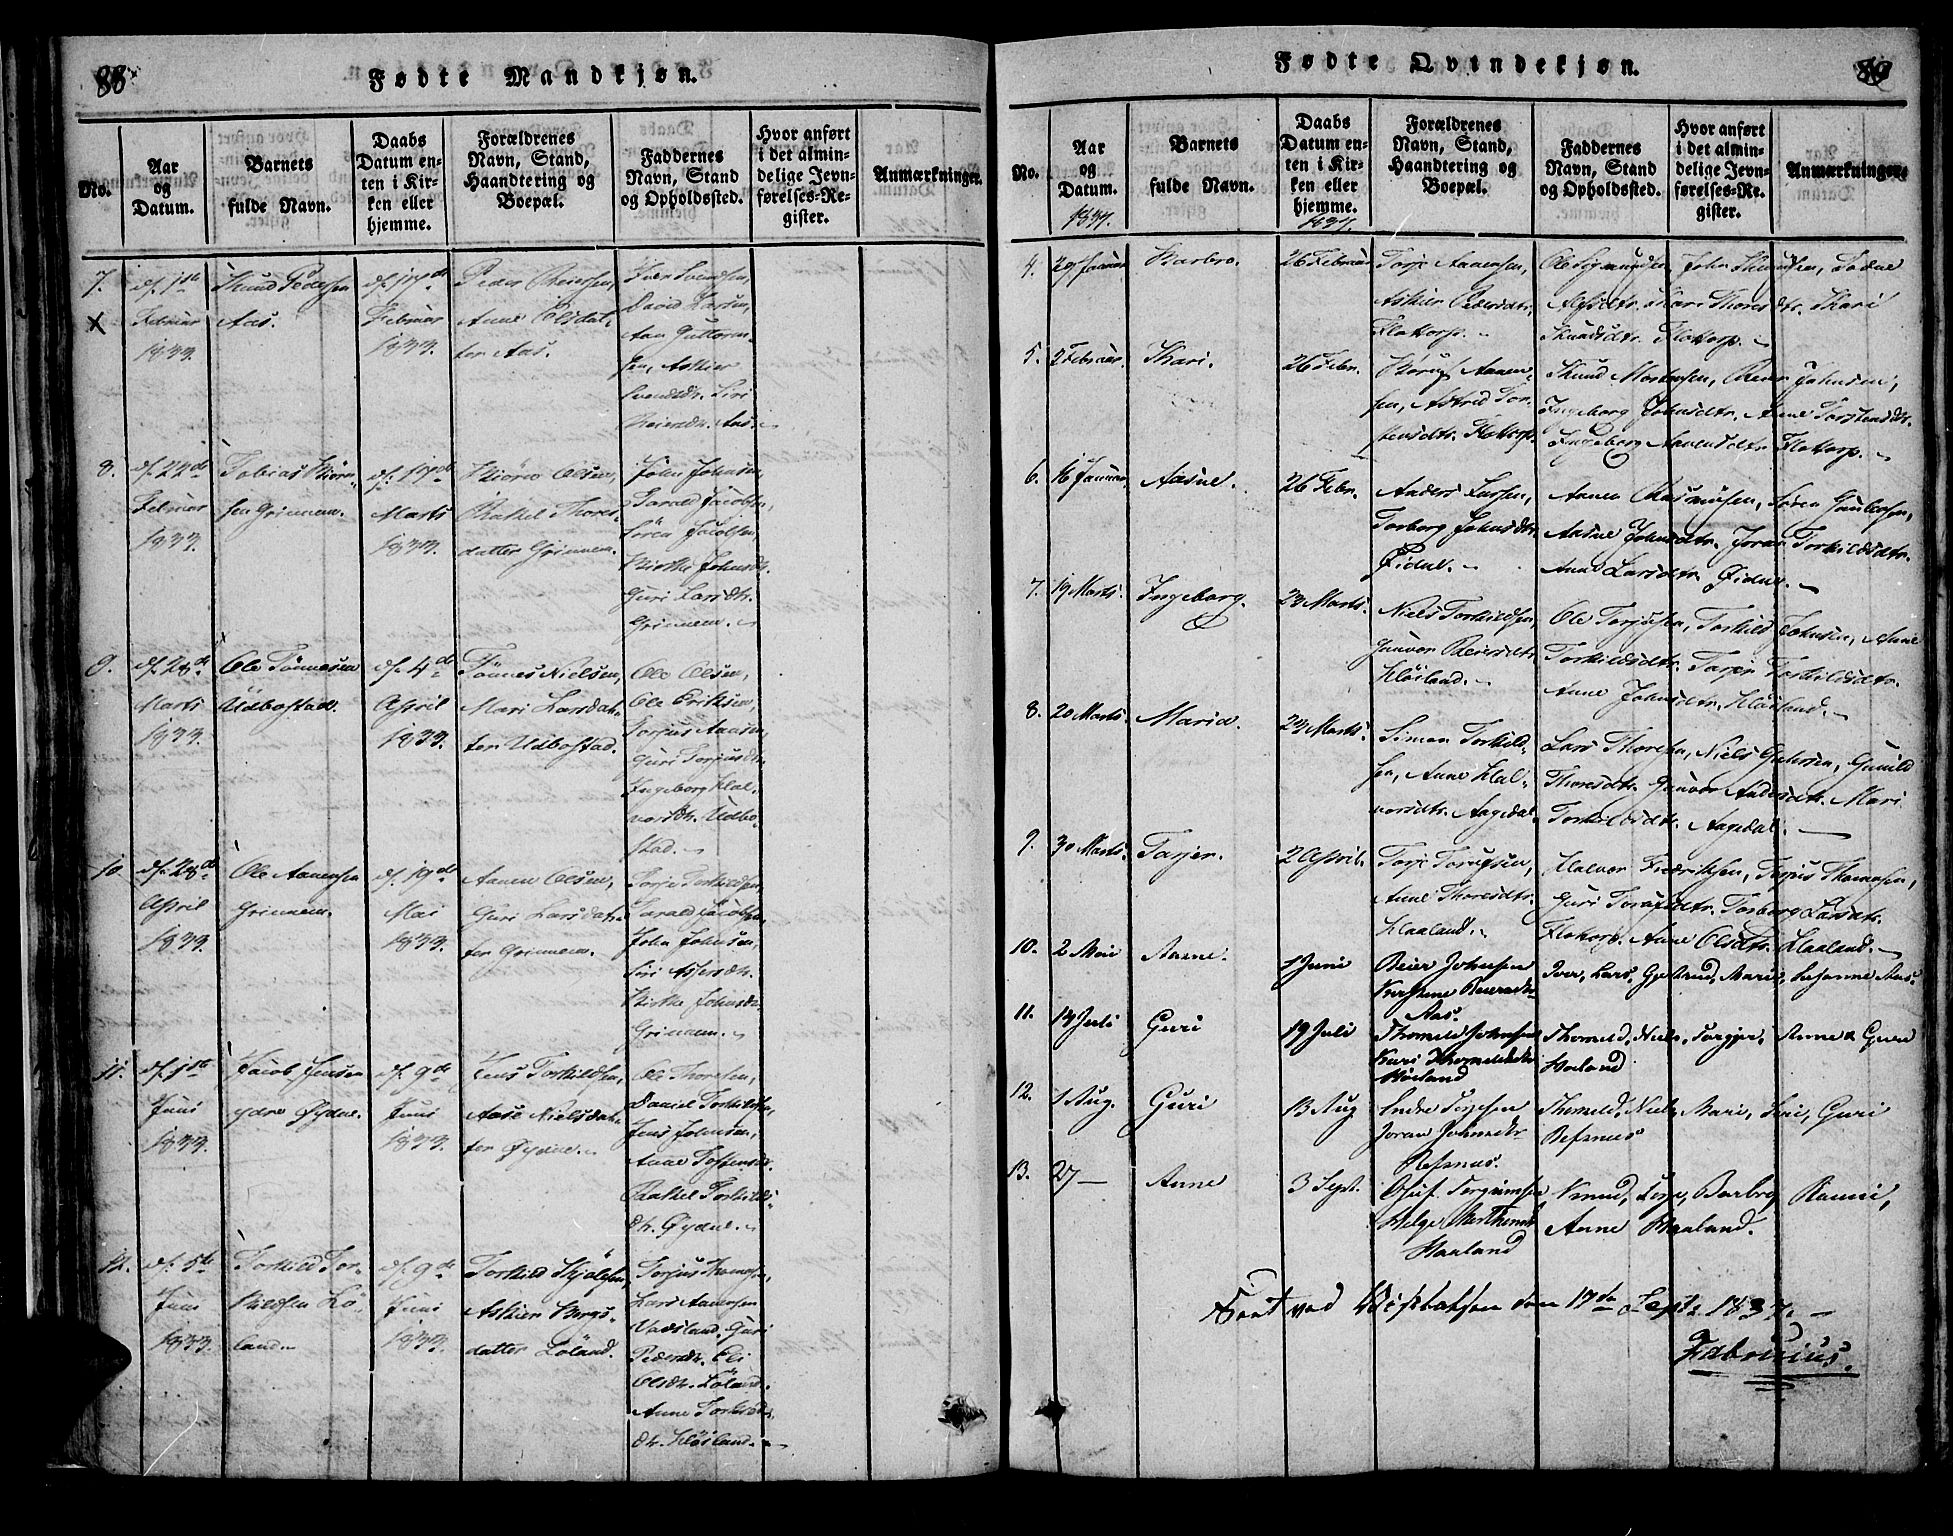 88
Fødte Mandkjøn.
No.
Aar
og
Datum.
Barnets
fulde Navn.
Daabs
Datum en-
ten i Kir-
ken eller
hjemme.
Forældrenes
Navn, Stand,
Haandtering og
Boepæl.
Faddernes
Navn, Stand
og Opholdssted.
Hvor anført
i det almin-
delige Jevn-
førelses-Re-
gister.
Anmærkninger.
7.
X
d. 1ste
Februar
1833.
Knud Pedersen
Aas.
d. 17de
Februar
1833.
Peder Reiersen,
Anne Olsdat-
ter Aas.
Iver Svendsen,
David Larsen,
Aan Guttorm-
sen, Askier
Svendsdtr. Siri
Reiersdtr. Aas.
8.
d. 22de
Februar
1833.
Tobias Kiøre-
sen Grinnem.
d. 17de
Marts
1833.
Kiøre Olsen,
Rakel Thores-
datter Grinnem.
John Johnsen,
Tarald Jacobsen,
Søren Jacobsen,
Kirsthi Johnsdtr.
Guri Larsdtr.
Grinnem.
9.
d. 28de
Marts
1833.
Ole Tønnesen
Udbostad.
d. 4de
April
1833.
Tønnes Nielsen,
Mari Larsdat-
ter Udbostad.
Ole Olsen,
Ole Eriksen,
Torjus Aansen,
Guri Torjusdtr.
Ingeborg Hal-
vorsdtr. Udbo-
stad.
10.
d. 28de
April
1833.
Ole Aanensen
Grinnem.
d. 19de
Mai
1833.
Aanen Olsen,
Guri Larsdat-
ter Grinnem.
Torje Torkildsen,
Tarald Jacobsen,
John Johnsen,
Siri Assersdtr.
Kirsthe Johnsdtr.
Grinnem.
11.
d. 1ste
Juni
1833.
Jacob Jensen
ydre Øydne.
d. 9de
Juni
1833.
Jens Torkildsen,
Aase Nielsdat-
ter Øydne.
Ole Thoresen,
Daniel Torkildsen,
Jens Johnsen,
Anne Tostensd.
Rakel Torkilds-
dtr. Øydne.
12.
d. 5te
Juni
1833.
Torkild Tor-
kildsen Lö-
land.
d. 9de
Juni
1833.
Torkild Kjölsen,
Askier Bergs-
datter Löland.
Torjus Thomesen,
Lars Aanensen
Vaasland, Guri
Pedersdtr. Eli
Olsdtr. Löland.
Anne Torkilds-
dtr. Höiland.
Fødte Qvindekjøn.
89
No.
Aar
og
Datum.
1837.
Barnets
fulde Navn.
Daabs
Datum en-
ten i Kir-
ken eller
hjemme.
1837.
Forældrenes
Navn, Stand,
Haandtering og
Boepæl.
Faddernes
Navn, Stand
og Opholdssted.
Hvor anført
i det almin-
delige Jevn-
førelses-Re-
gister.
Anmærkninger.
4.
29 Januar
Barbro.
26 Februar
Torje Aanensen,
Askier Pedersdtr.
Flottorp.
Ole Sigmundsen, John Knudsen, Todne
Alfsdtr. Kari Thoresdtr. Kari
Knudsdtr. Flottorp.
5.
2 Februar.
Kari.
26 Febr.
Børuf Aanen-
sen, Astrid Tor-
stensdtr. Flottorp.
Knud Mortensen, Reier Johnsen,
Ingeborg Johnsdtr. Anne Torstensdtr.
Ingeborg Aanensdtr. Flottorp.
6.
16 Januar.
Aasne.
26 Febr.
Anders Larsen,
Torborg Johnsdtr.
Øidne.
Aanen Rasmusen, Søren Gundersen,
Aasne Johnsdtr. Joran Torkildsdtr.
Anne Larsdtr. Øidne.
7.
19 Marts.
Ingeborg.
23 Marts.
Niels Torkildsen,
Gunvor Reiersdtr.
Höiland.
Ole Torjusen, Torkild Johnsen, Anne
Torkildsdtr. Tarjer Torkildsdtr.
Anne Johnsdtr. Höiland.
8.
20 Marts.
Maria.
23 Marts.
Simon Torkild-
sen, Anne Hal-
vorsdtr. Aagedal.
Lars Thoresen, Niels Gjetersen, Gunild
Thoresdtr. Gunvor Andersdtr. Mari
Torkildsdtr. Aagedal.
9.
30 Marts.
Tarjer.
2 April.
Torje Torufsen,
Anne Thoresdtr.
Haaland.
Halvor Fredriksen, Torjus Thomesen,
Guri Torufsdtr. Torborg Larsdtr.
Flottorp. Anne Olsdtr. Haaland.
10.
2 Mai
Aasne.
1 Juni
Reier Johnsen
Kirstine Reiersdtr
Aas.
Iver, Lars, Gjertrud, Marie, Susanne Aas.
11.
14 Juli
Guri
19 Juli
Thomeld Johnsen
Kari Thomeldsdtr
Høiland
Thomeld, Niels, Targjer, Anne & Guri
Høiland
12.
1 Aug.
Guri
13 Aug
Endre Torjesen
Joran Johnsdtr
Refsnes.
Thomeld, Niels, Mari, Siri, Guri
Refsnes
13.
27 —
Anne
3 Sept.
Oluf Torgrimsen
Helge Morthensdtr
Haaland
Knud, Torje, Barbro, Ranni,
Anne Haaland.
Seet ved Visitatsen den 17de Septr 1837.
Fabricius.